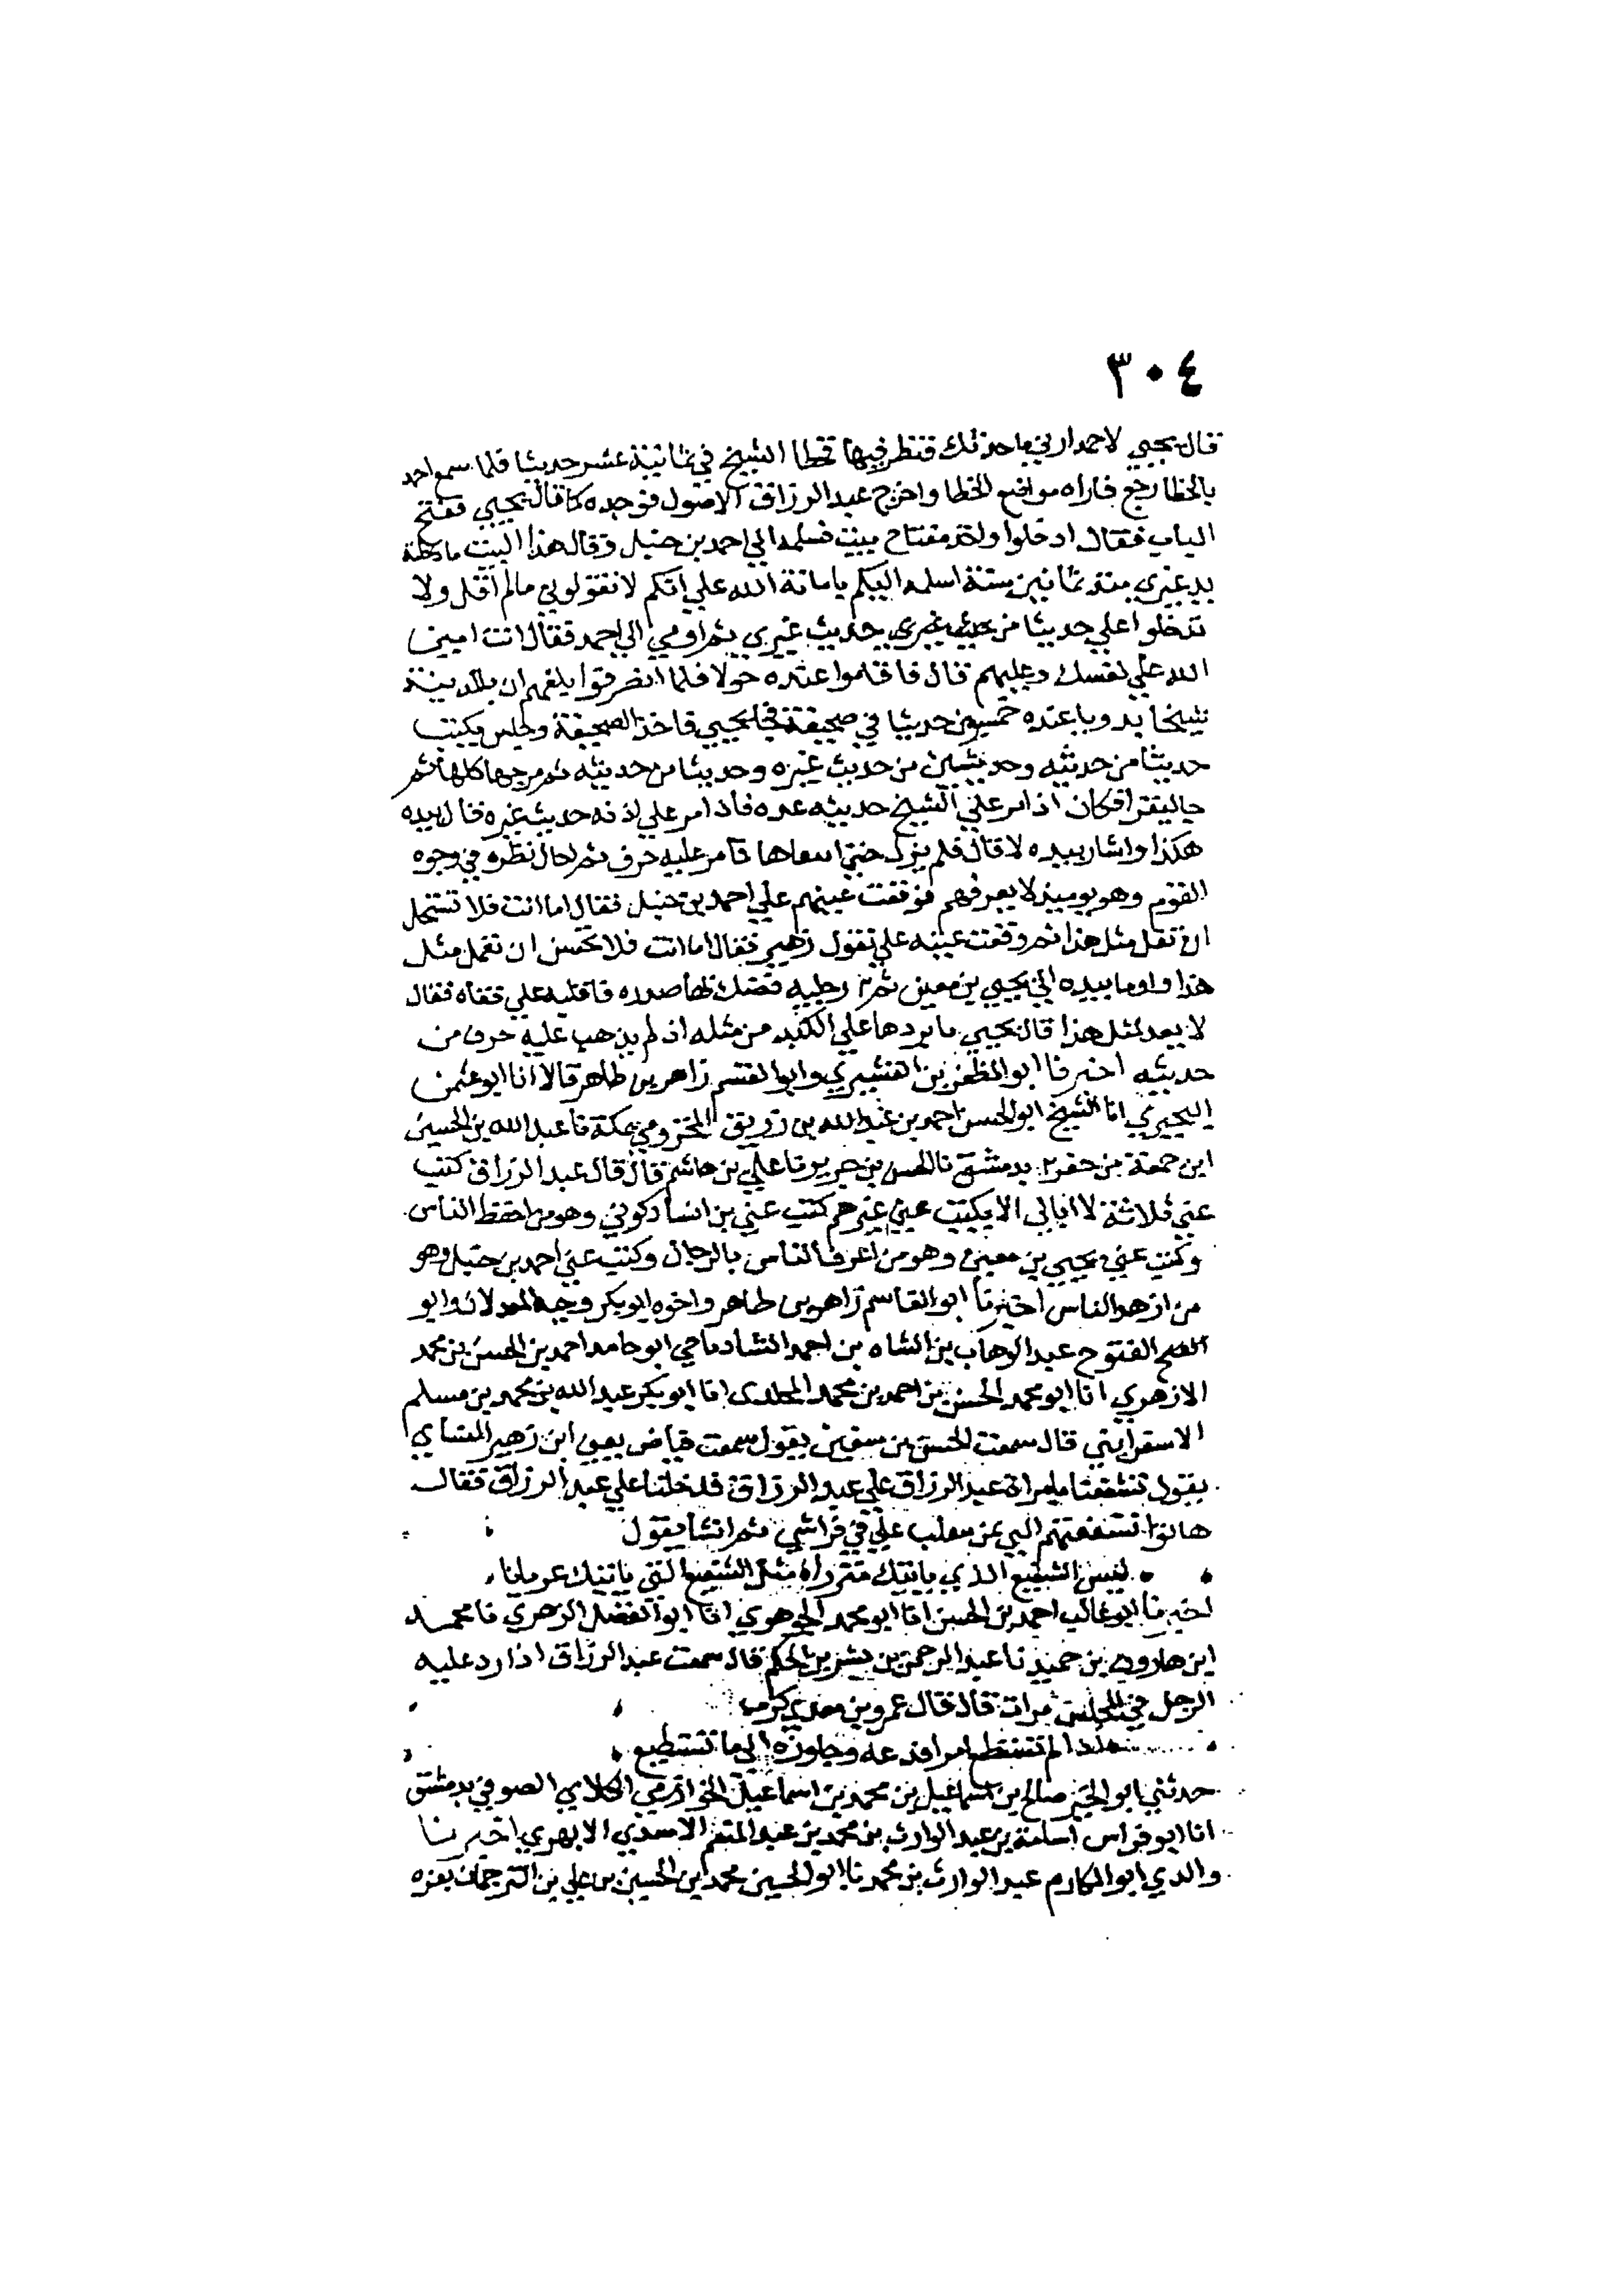 ٣٠٤
قال يحيى لاحمد ارني ما حدثك فنظر فيها فخطا الشيخ في ثمانية عشر حديثا فلما سمع احمد
بالخطا رجع فاراه مواضع الخطا واخرج عبد الرزاق الاصول فوجده كما قال يحيى ففتح
الباب فقال ادخلوا واخذ مفتاح بيت فسلمه الي احمد بن حنبل وقال هذا البيت ما دخلته
يد غيري منذ ثمانين سنة اسلمه اليكم بامانة الله علي انكم لا تقولوني ما لم اقل ولا
تدخلوا علي حديثا من حديث غيري ثم اومي الي احمد فقال انت امين
الله علي نفسك وعليهم قال فاقاموا عنده حولا فلما انصرفوا بلغهم ان بالمدينة
شيخا عنده خمسين حديثا في صحيفة فجا يحيى فاخذ الصحيفة وجلس يكتب
حديثا من حديثه وحديثين من حديث غيره وحديثا من حديثه ثم مرجها كلها ثم
جا ليقرا فكان اذا مر علي الشيخ حديثه عده فاذا مر علي اذنه حديث غيره قال بيده
هكذا واشار بيده لا قال فلم يزل حتى فما مر عليه حرف ثم احال نظره في وجوه
القوم وهو يوميذ لا يعرفهم فوقعت عينهم علي احمد بن حنبل فقال اما انت فلا تستحل
ان تفعل مثل هذا ثم وقعت عينه علي زهير فقال اما انت فلا تحسن ان تعمل مثل
هذا واوما بيده الي يحيى بن معين ثم رجليه صدره فاقلبه علي قفاه فقال
لا يعد لمثل هذا قال يحيى ما بردها علي الكبد من مثله اذ لم يذهب عليه حرف من
حديثه اخبرنا ابو المظفر بن القشيري وابو القسم زاهر بن طاهر قالا انا ابو عثمن
البحيري انا الشيخ ابو الحسن احمد بن عبد الله بن زريق المخزومي بمكة نا عبد الله بن الحسين
ابن جمعة بن حفر بدمشق نا الحسن بن جرير نا علي بن هاشم قال قال عبد الرزاق كتب
عني ثلاثة لا ابالي الا يكتب عني غيرهم كتب عني بن الشادكوني وهو من احفظ الناس
وكتب عني يحيى بن معين وهو من اعرف الناس بالرجال وكتب عني احمد بن حنبل وهو
من ازهد الناس اخبرنا ابو القاسم زاهر بن طاهر واخوه ابو بكر وجيه المعدلان وابو
الفتح الفتوح عبد الوهاب بن الشاه بن احمد الشاذياخي ابو حامد احمد بن الحسن بن محمد
الازهري انا ابو محمد الحسن بن احمد بن محمد المخلدي انا ابو بكر عبد الله بن محمد بن مسلم
الاسفرايني قال سمعت الحسن بن سفين يقول سمعت فياض يعني ابن زهير النسايي
يقول تشفعنا بامراة عبد الرزاق علي عبد الرزاق فدخلنا علي عبد الرزاق فقال
هاتوا تشفعتم الي بمن ينقلب علي في فراشي ثم انشا يقول
ليس الشفيع الذي ياتيك متزرا مثل الشفيع الذي ياتيك عريانا
اخبرنا ابو غالب احمد بن الحسن انا ابو محمد الجوهري انا ابو الفضل الزهري نا محمد
ابن هارون بن حميد نا عبد الرحمن بن بشر بن الحكم قال سمعت عبد الرزاق اذا رد عليه
الرجل في المجلس مرات قال قال عمرو بن معدي كرب
اذا لم تستطع امرا فدعه وجاوزه الي ما تستطيع
حدثني ابو الخير صالح بن اسماعيل بن محمد بن اسماعيل الخوارزمي الصوفي بدمشق
انا ابو فراس اسامة بن عبد الوارث بن محمد بن عبد المنعم الاسدي الابهري اخبرنا
والدي ابو المكارم عبد الوارث بن محمد نا ابو الحسين محمد بن الحسين بن علي بن الترجمان بغزه